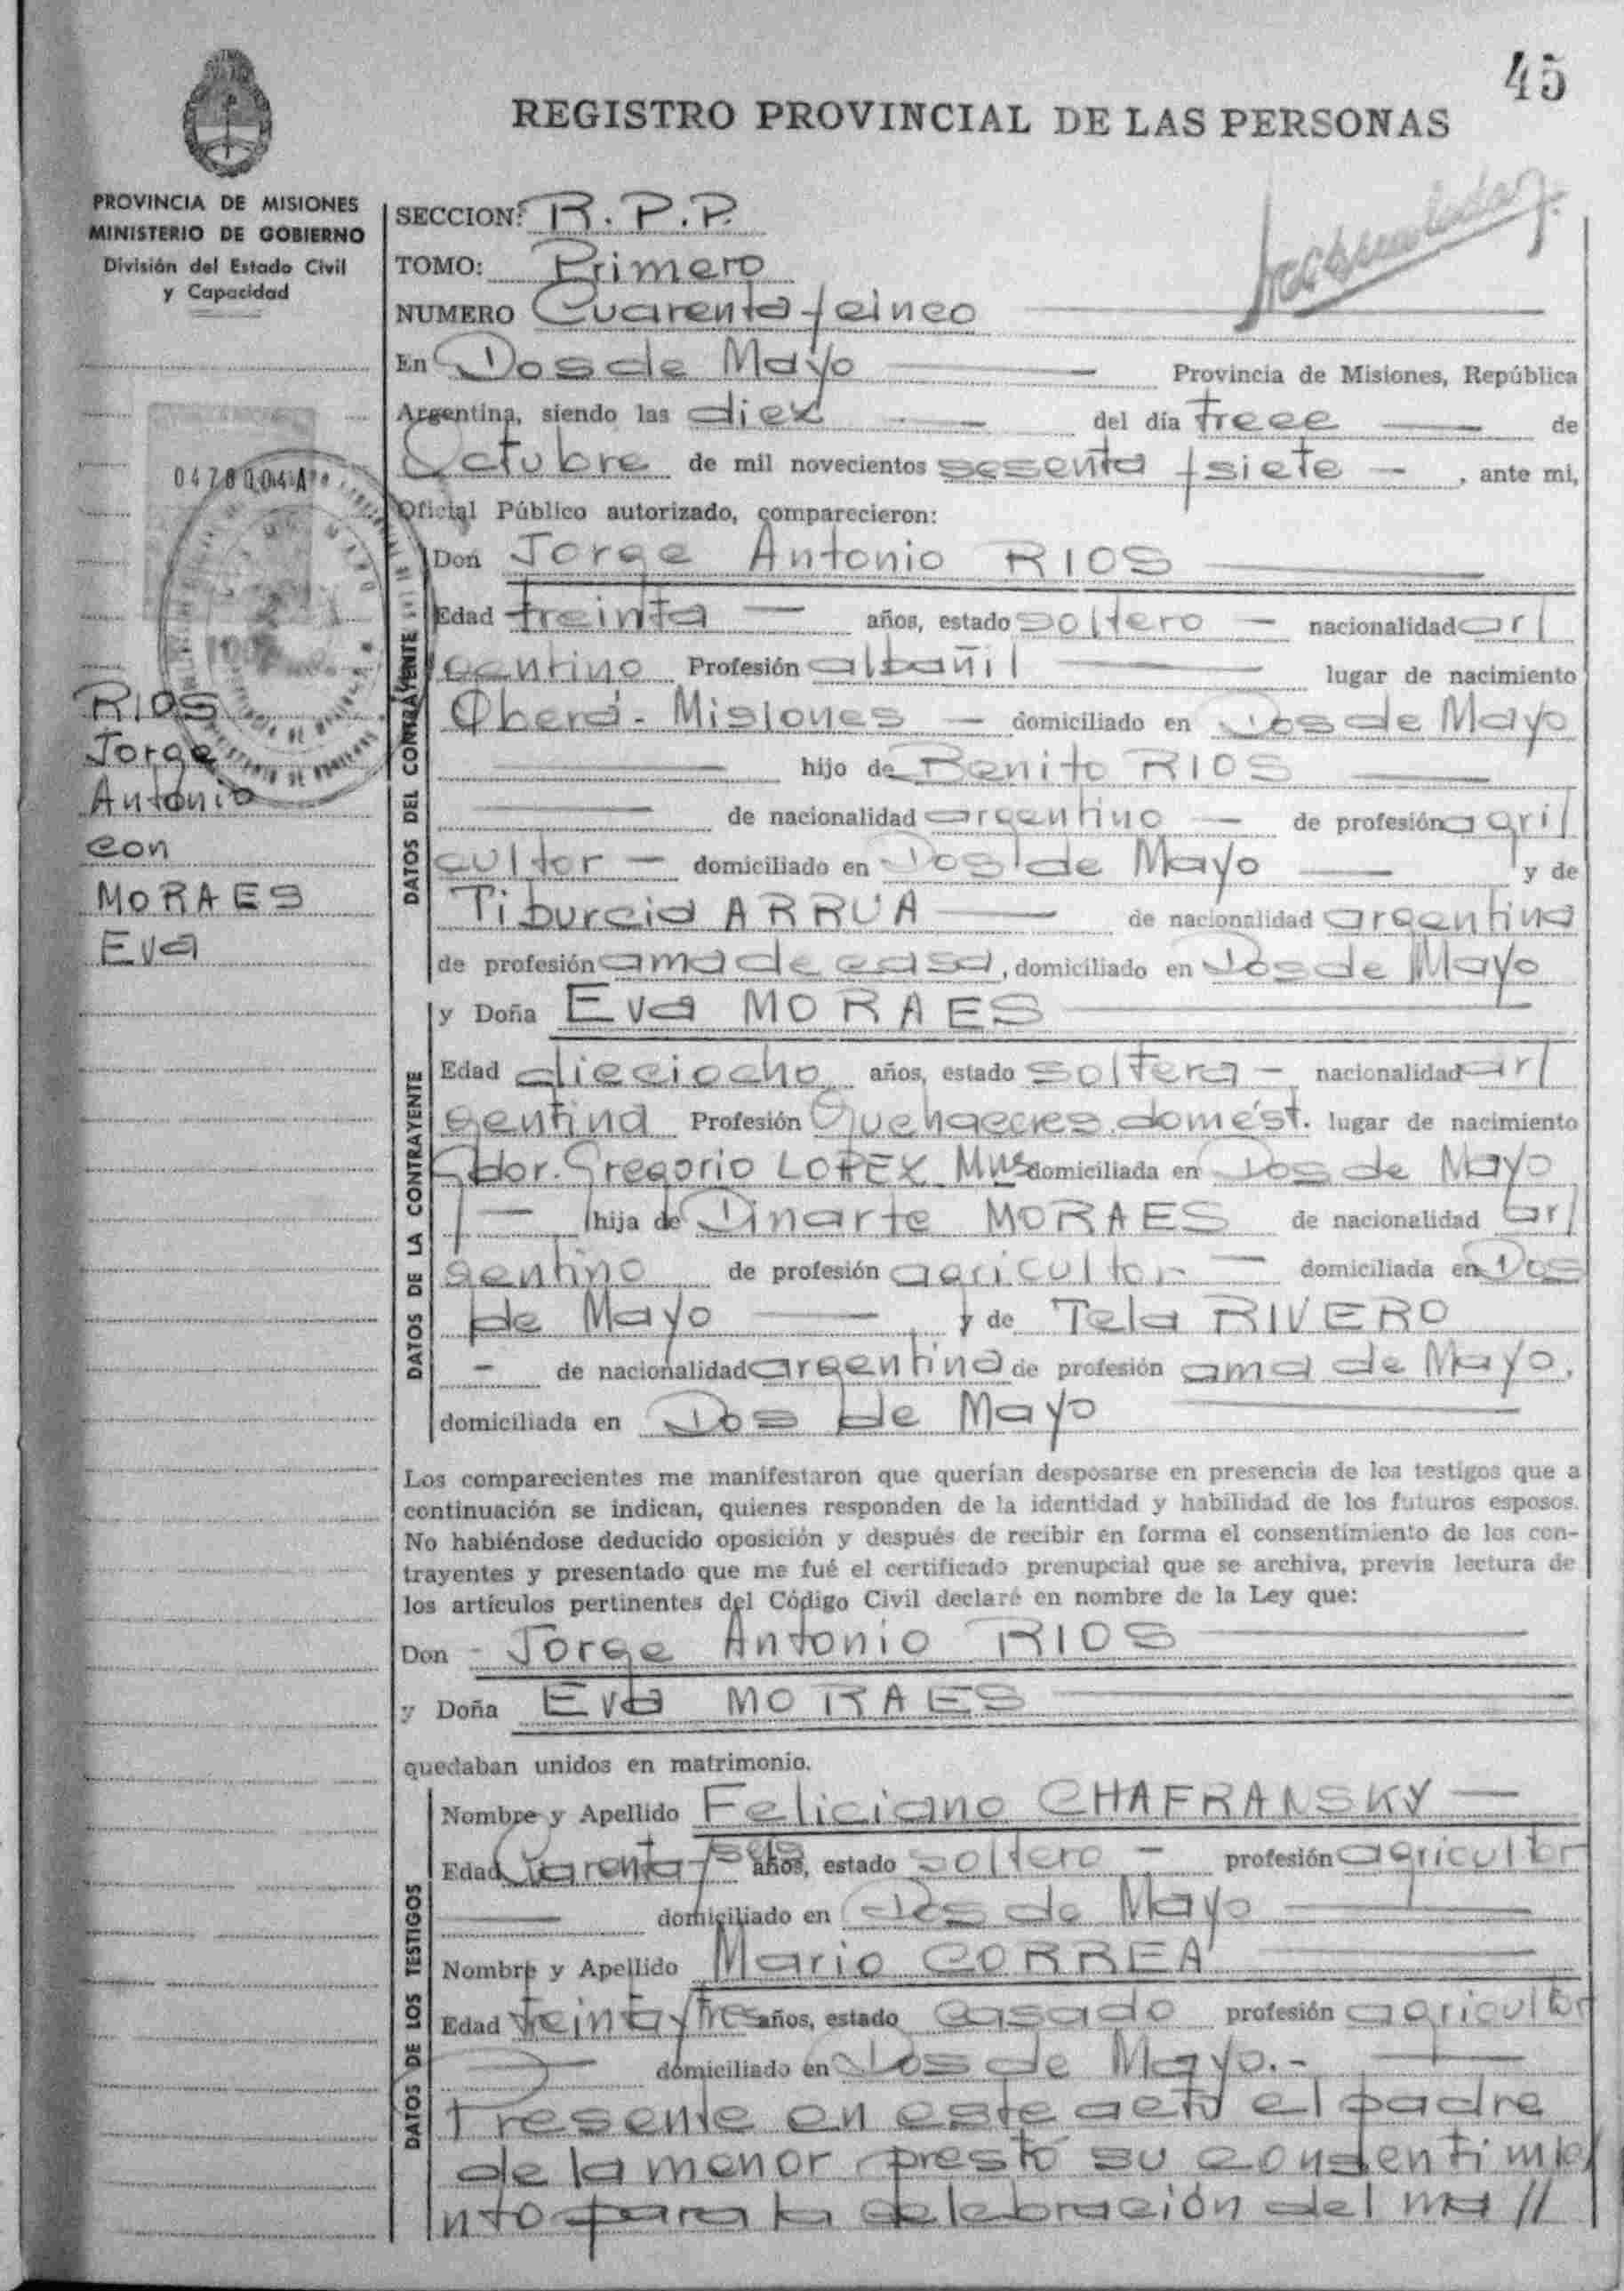 45
REGISTRO PROVINCIAL DE LAS PERSONAS
PROVINCIA DE MISIONES
MINISTERIO DE GOBIERNO
División del Estado Civil
y Capacidad
SECCION: R.P.P.
TOMO: Primero
NUMERO Cuarenta y cinco
En Dos de Mayo Provincia de Misiones, República
Argentina, siendo las diez del día trece de
Octubre de mil novecientos sesenta y siete, ante mi,
Oficial Público autorizado, comparecieron:
Don Jorge Antonio RIOS
Edad treinta años, estado soltero nacionalidad ar/
gentino Profesión albañil lugar de nacimiento
Oberá - Misiones domiciliado en Dos de Mayo
hijo de Benito RIOS
de nacionalidad argentino de profesión agri/
cultor domiciliado en Dos de Mayo y de
Tiburcia ARRUA de nacionalidad argentina
de profesión ama de casa, domiciliado en Dos de Mayo
DATOS DEL CONTRAYENTE
0478004A
RIOS
Jorge
Antonio
con
MORAES
Eva
y Doña Eva MORAES
Edad dieciocho años, estado soltera nacionalidad ar/
gentina Profesión Quehaceres domést. lugar de nacimiento
Gdor. Gregorio LOPEZ Mns domiciliada en Dos de Mayo
hija de Dinarte MORAES de nacionalidad ar/
gentino de profesión agricultor domiciliada en Dos
de Mayo y de Tela RIVERO
de nacionalidad argentina de profesión ama de Mayo,
domiciliada en Dos de Mayo
DATOS DE LA CONTRAYENTE
Los comparecientes me manifestaron que querían desposarse en presencia de los testigos que a
continuación se indican, quienes responden de la identidad y habilidad de los futuros esposos.
No habiéndose deducido oposición y después de recibir en forma el consentimiento de los con-
trayentes y presentado que me fué el certificado prenupcial que se archiva, previa lectura de
los artículos pertinentes del Código Civil declaré en nombre de la Ley que:
Don - Jorge Antonio RIOS
y Doña Eva MORAES
quedaban unidos en matrimonio.
Nombre y Apellido Feliciano CHAFRANSKY
Edad Cuarenta y seis años, estado soltero profesión agricultor
domiciliado en Dos de Mayo
Nombre y Apellido Mario CORREA
Edad treinta y tres años, estado casado profesión agricultor
domiciliado en Dos de Mayo.-
DATOS DE LOS TESTIGOS
Presente en este acto el padre
de la menor prestó su consentimie/
nto para la celebración del ma//